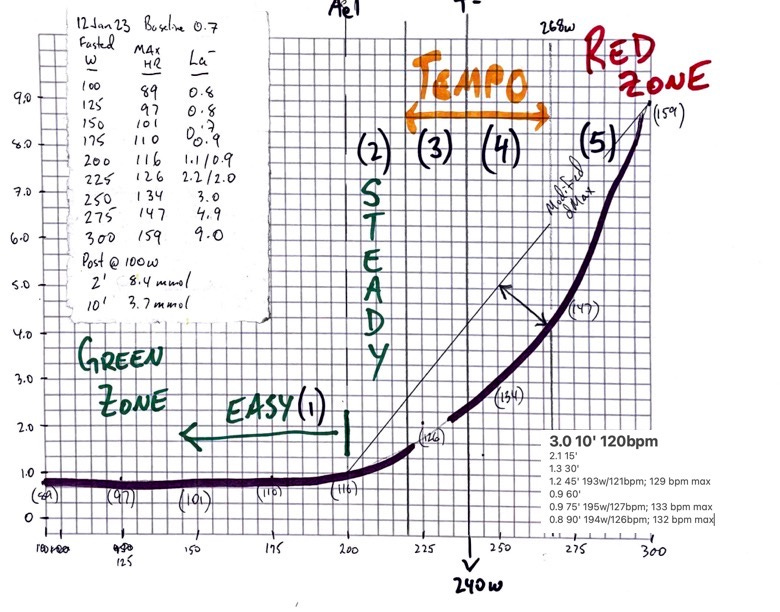 AeT
268w
12 Jan 23 Baseline 0.7
Fasted
W MAX HR La-
100 89 0.8
125 97 0.8
150 101 0.7
175 110 0.9
200 116 1.1/0.9
225 126 2.2/2.0
250 134 3.0
275 147 4.9
300 159 9.0
Post @ 100w
2' 8.4 mmol
10' 3.7 mmol
RED
ZONE
TEMPO
(2) (3) (4) (5)
STEADY
Modified
dMax
GREEN
ZONE
EASY (1)
9.0
8.0
7.0
6.0
5.0
4.0
3.0
2.0
1.0
0
(159)
(147)
(134)
(126)
(89) (97) (101) (110) (116)
3.0 10' 120bpm
2.1 15'
1.3 30'
1.2 45' 193w/121bpm; 129 bpm max
0.9 60'
0.9 75' 195w/127bpm; 133 bpm max
0.8 90' 194w/126bpm; 132 bpm max
125 150 175 200 225 250 275 300
240w